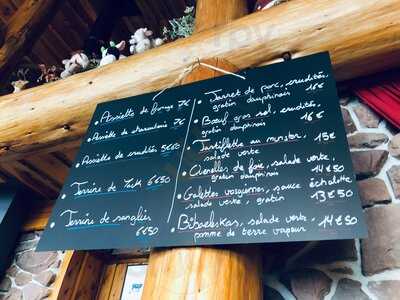 Assiette de fromage 7€
Assiette de charcuterie 7€
Assiette de crudités 5€50
Terrine de Turk 6€50
Terrine de sanglier
6€50
• Jarret de porc, crudités,
gratin dauphinois 16€
• Bœuf gros sel, crudités,
gratin dauphinois 16€
• Tartiflette au munster, 15€
salade verte
• Quenelles de foie, salade verte,
gratin dauphinois 14€50
• Galettes vosgiennes, sauce échalotte
gratin 13€50
• Bibeleskas, salade verte
pomme de terre vapeur 14€50